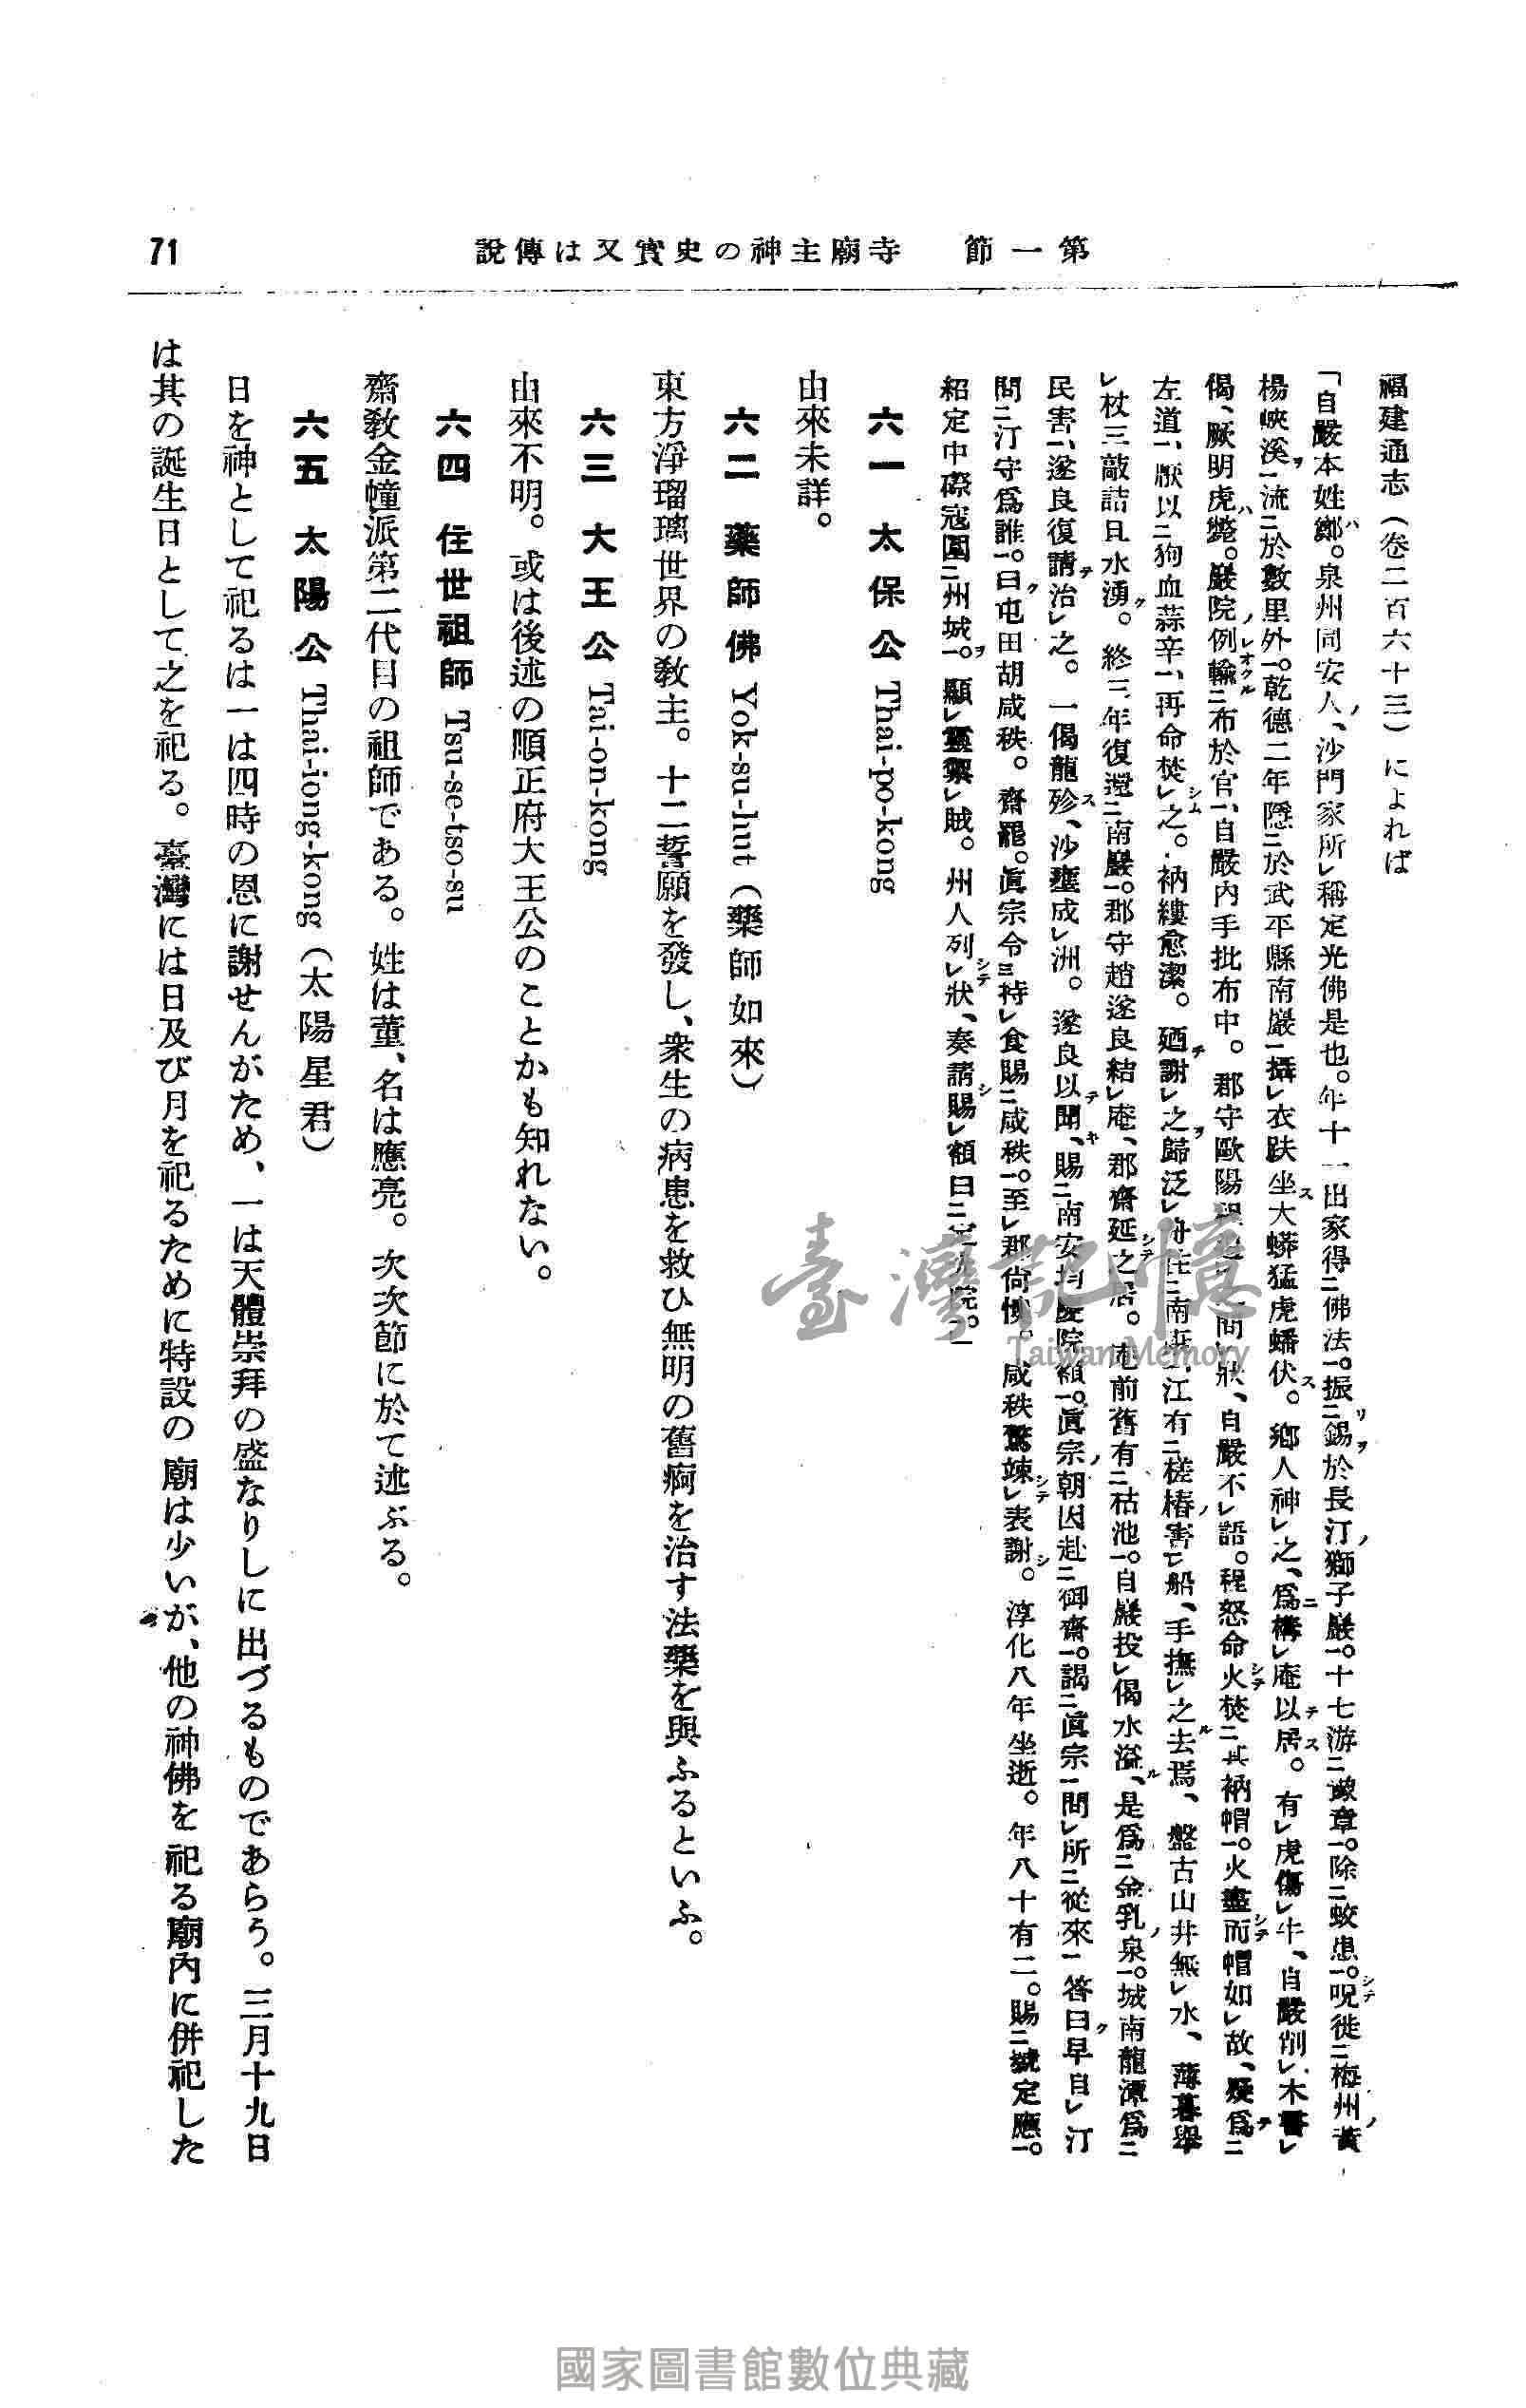 第一節　寺廟主神の史實又は傳說
71
福建通志（卷二百六十三）によれば
「自嚴本姓鄭ハ。泉州同安人ノ、沙門家所レ稱定光佛是也。年十一出家得二佛法一。振リ二錫ヲ於長汀ノ獅子巖一。十七游二豫章一。除二蛟患一。呪シテ徙二梅州ノ黃
楊峽溪ヲ一流二於數里外一。乾德二年隱二於武平縣南巖一攝レ衣趺坐ス大蟒猛虎蟠伏ス。鄉人神レ之、爲ニ構レ庵以テ居ス。有レ虎傷レ牛、自嚴削レ木書レ
偈、厥明虎ハ斃。巖院ノ例レオクル輸二布於官一、自嚴內手批布中。郡守歐陽程追レ之問レ狀、自嚴不レ語。程怒命火シテ焚二其衲帽一。火盡シテ而帽如レ故、疑テ爲二
左道一、厭以二狗血蒜辛一、再命焚シムレ之。衲縷愈潔。廼チ謝レ之ヲ歸泛レ舟往二南康一江有二槎樁ノ害一レ船、手撫レ之去ル焉、盤古山井無レ水、薄暮舉
レ杖三敲詰旦水湧ク。終三年復還二南巖一。郡守趙遂良結レ庵、郡齋延シテ之居。庵前舊有二枯池一。自嚴投レ偈水溢ル、是爲二金乳ノ泉一。城南龍潭爲二
民害一、遂良復請テ治レ之。一偈龍殄ス、沙壅成レ洲。遂良以テ聞キ、賜二南安均慶院額一。眞宗ノ朝因赴二御齋一。謁二眞宗一問レ所二從來一答曰ク早自レ汀
問二汀守爲誰一。曰ク屯田胡咸秩。齋罷。眞宗令三持レ食賜二咸秩一。至レ郡尙燠。咸秩驚竦シテレ表謝シ。淳化八年坐逝。年八十有二。賜二號定應一。
紹定中磜寇圍二州城ヲ一。顯レ靈禦レ賊。州人列シテレ狀、奏請シ賜レ額曰二定光院一。」
六一　太保公　Thai-po-kong
由來未詳。
六二　藥師佛　Yok-su-hut（藥師如來）
東方淨瑠璃世界の敎主。十二誓願を發し、衆生の病患を救ひ無明の舊痾を治す法藥を與ふるといふ。
六三　大王公　Tai-on-kong
由來不明。或は後述の順正府大王公のことかも知れない。
六四　住世祖師　Tsu-se-tso-su
齋敎金幢派第二代目の祖師である。姓は董、名は應亮。次次節に於て述ぶる。
六五　太陽公　Thai-iong-kong（太陽星君）
日を神として祀るは一は四時の恩に謝せんがため、一は天體崇拜の盛なりしに出づるものであらう。三月十九日
は其の誕生日として之を祀る。臺灣には日及び月を祀るために特設の廟は少いが、他の神佛を祀る廟內に併祀した
臺灣記憶
Taiwan Memory
國家圖書館數位典藏